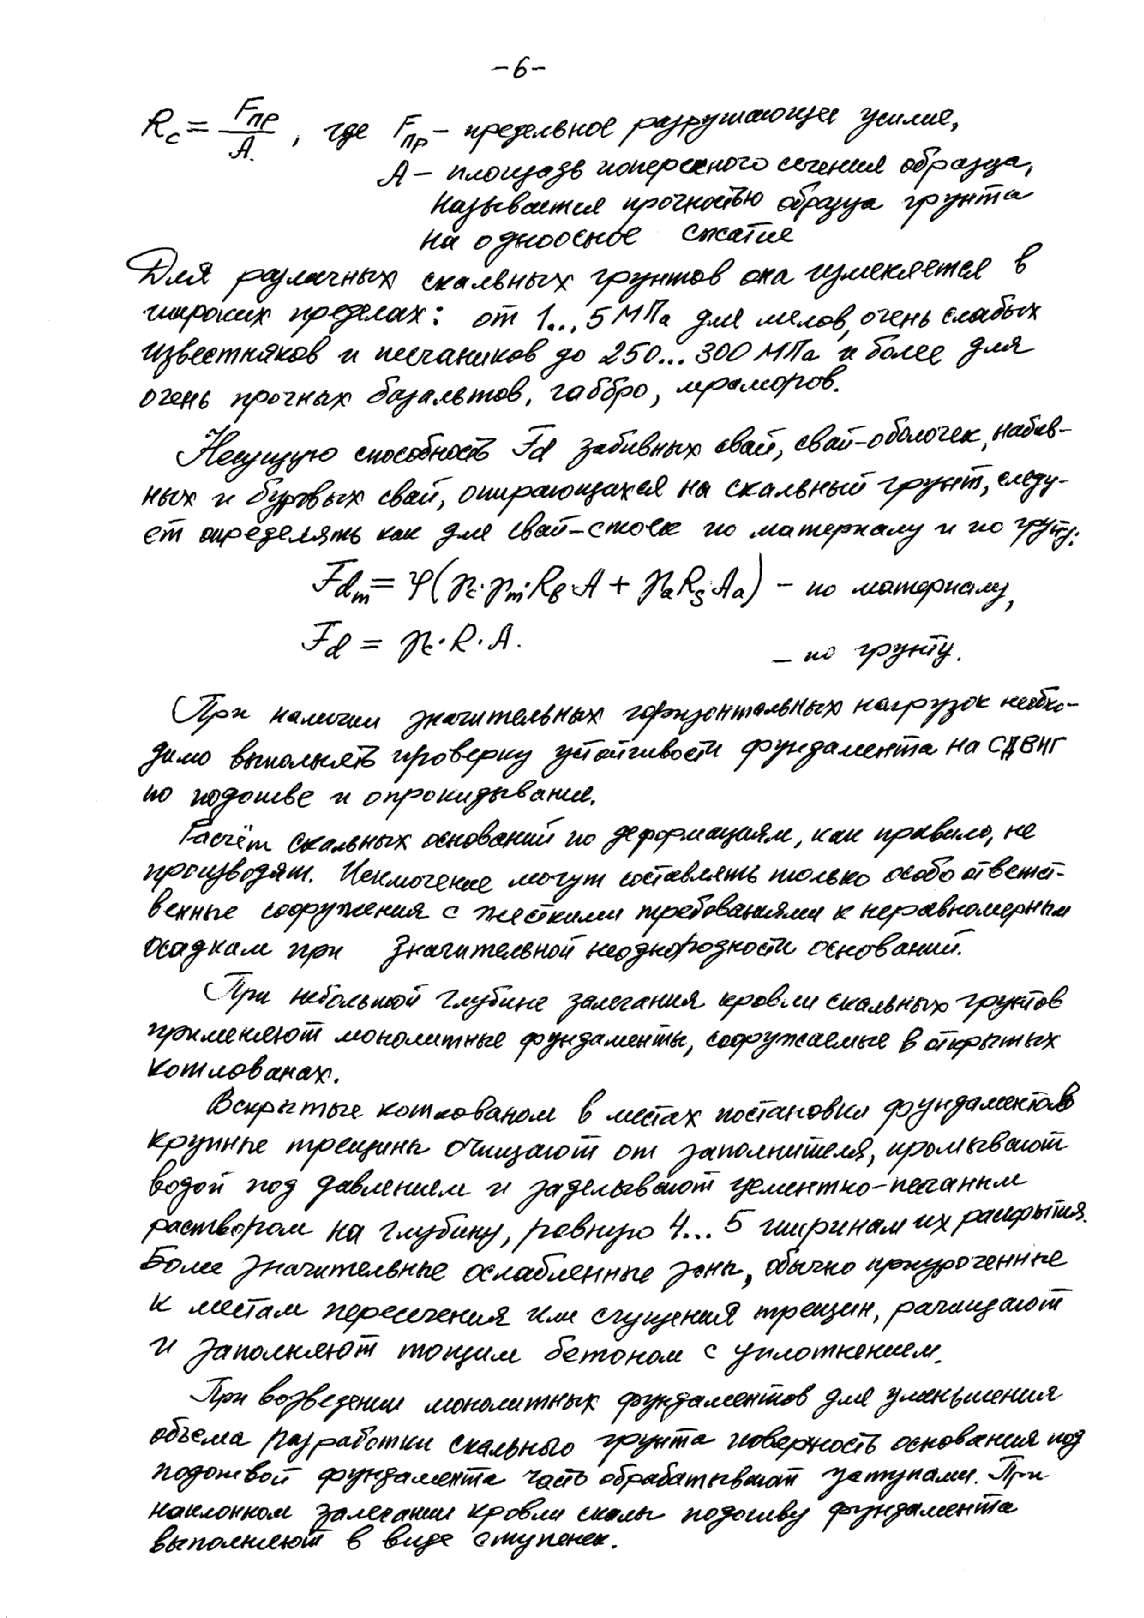 -6-
R_c = F_пр / A , где F_пр – предельное разрушающее усилие,
A – площадь поперечного сечения образца,
называется прочностью образца грунта
на одноосное сжатие
Для различных скальных грунтов она изменяется в
широких пределах: от 1...5 МПа для мелов, очень слабых
известняков и песчаников до 250...300 МПа и более для
очень прочных базальтов, габбро, мраморов.
Несущую способность Fd забивных свай, свай-оболочек, набив-
ных и буровых свай, опирающихся на скальный грунт, следу-
ет определять как для свай-стоек по материалу и по грунту:
Fd_m = φ(γ_c·γ_m·R_b·A + γ_a R_s A_a) – по материалу,
Fd = γ_c·R·A. – по грунту.
При наличии значительных горизонтальных нагрузок необхо-
димо выполнять проверку устойчивости фундамента на сдвиг
по подошве и опрокидывание.
Расчёт скальных оснований по деформациям, как правило, не
производят. Исключение могут составлять только особо ответст-
венные сооружения с жесткими требованиями к неравномерным
осадкам при значительной неоднородности оснований.
При небольшой глубине залегания кровли скальных грунтов
применяют монолитные фундаменты, сооружаемые в открытых
котлованах.
Вскрытые котлованом в местах постановки фундаментов
крупные трещины очищают от заполнителя, промывают
водой под давлением и заделывают цементно-песчаным
раствором на глубину, равную 4...5 ширинам их раскрытия.
Более значительные ослабленные зоны, обычно приуроченные
к местам пересечения или сгущения трещин, расчищают
и заполняют тощим бетоном с уплотнением.
При возведении монолитных фундаментов для уменьшения
объема разработки скального грунта поверхность основания под
подошвой фундамента часто обрабатывают уступами. При
наклонном залегании кровли скалы подошву фундамента
выполняют в виде ступенек.